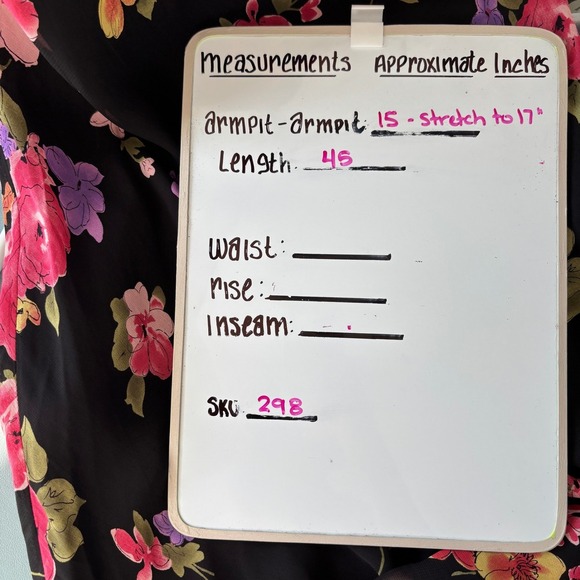 measurements Approximate Inches
armpit-armpit 15 - Stretch to 17"
Length. 45
waist:
rise:
Inseam:
SKU 298